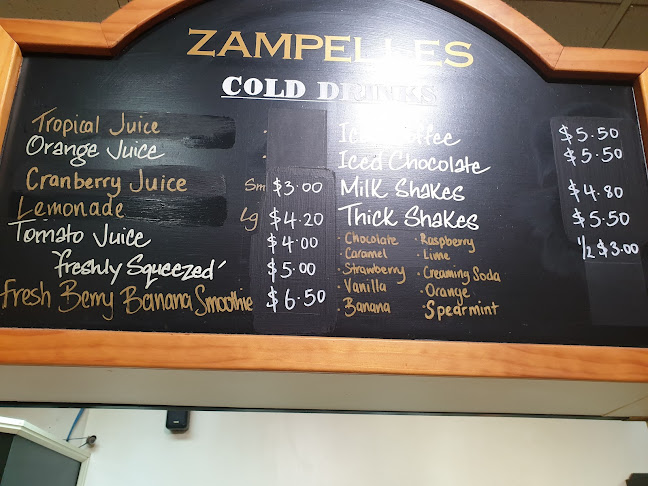 ZAMPELLES
COLD DRINKS
Tropical Juice
Orange Juice
Cranberry Juice Sm $3.00
Lemonade Lg $4.20
Tomato Juice $4.00
'Freshly Squeezed' $5.00
Fresh Berry Banana Smoothie $6.50
Iced Coffee $5.50
Iced Chocolate $5.50
Milk Shakes $4.80
Thick Shakes $5.50
½ $3.00
· Chocolate · Raspberry
· Caramel · Lime
· Strawberry · Creaming Soda
· Vanilla · Orange
· Banana · Spearmint